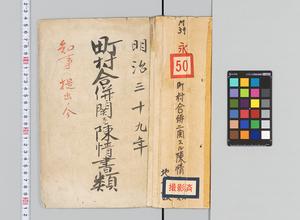 明治三十九年
町村合併関スル陳情書類
知事提出ノ分
M39
永
50
町村合併ニ関スル陳情
撮影済